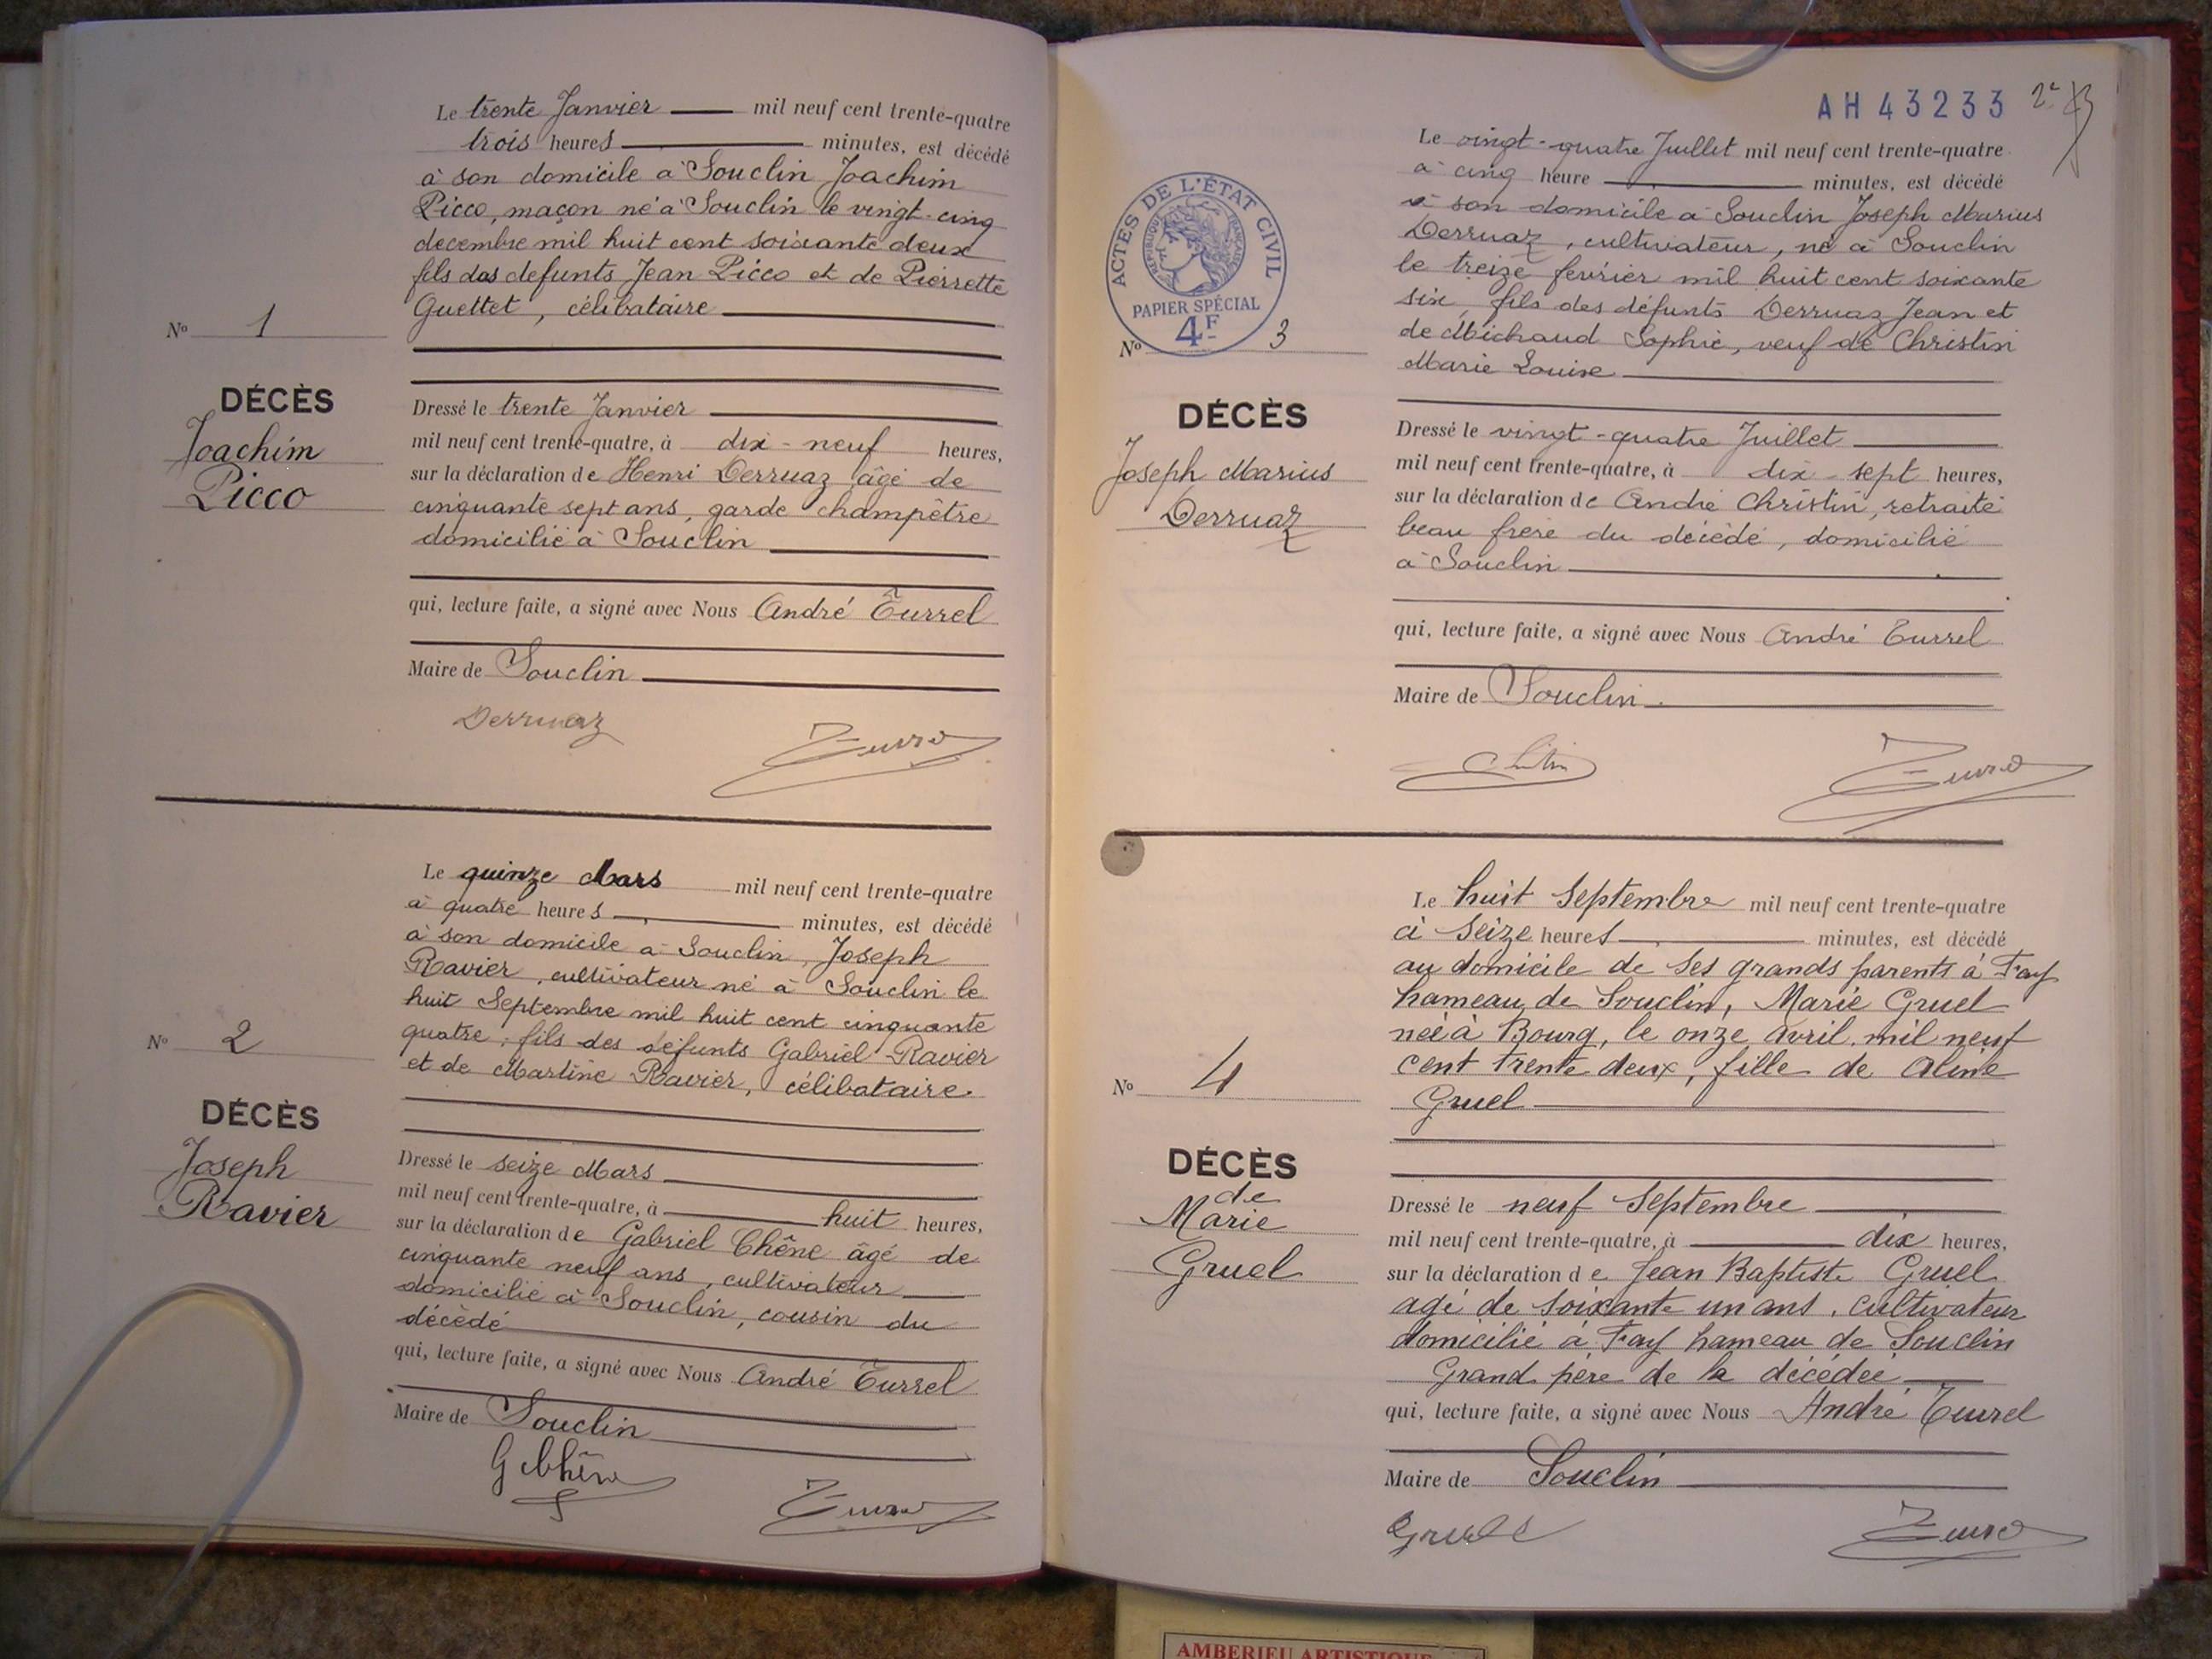 Le trente Janvier mil neuf cent trente-quatre
trois heures minutes, est décédé
à son domicile à Souclin Joachim
Picco, maçon né à Souclin le vingt-cinq
decembre mil huit cent soixante deux
fils des defunts Jean Picco et de Pierrette
Guettet, célibataire
N° 1
DÉCÈS
Joachim
Picco
Dressé le trente Janvier
mil neuf cent trente-quatre, à dix-neuf heures,
sur la déclaration de Henri Derruaz âgé de
cinquante sept ans, garde champêtre
domicilié à Souclin
qui, lecture faite, a signé avec Nous André Turrel
Maire de Souclin
Derruaz
Le quinze Mars mil neuf cent trente-quatre
à quatre heures minutes, est décédé
à son domicile à Souclin, Joseph
Ravier, cultivateur né à Souclin le
huit Septembre mil huit cent cinquante
quatre, fils des défunts Gabriel Ravier
et de Martine Ravier, célibataire.
N° 2
DÉCÈS
Joseph
Ravier
Dressé le seize Mars
mil neuf cent trente-quatre, à huit heures,
sur la déclaration de Gabriel Chêne âgé de
cinquante neuf ans, cultivateur
domicilié à Souclin, cousin du
décédé
qui, lecture faite, a signé avec Nous André Turrel
Maire de Souclin
G Chêne
AH 43233
Le vingt-quatre Juillet mil neuf cent trente-quatre
à cinq heure minutes, est décédé
à son domicile à Souclin Joseph Marius
Derruaz, cultivateur, né à Souclin
le treize fevrier mil huit cent soixante
six, fils des défunts Derruaz Jean et
de Michaud Sophie, veuf de Christin
Marie Louise
ACTES DE L'ÉTAT CIVIL
RÉPUBLIQUE FRANÇAISE
PAPIER SPÉCIAL
4F
N° 3
DÉCÈS
Joseph Marius
Derruaz
Dressé le vingt-quatre Juillet
mil neuf cent trente-quatre, à dix-sept heures,
sur la déclaration de André Christin, retraité
beau frère du décédé, domicilié
à Souclin
qui, lecture faite, a signé avec Nous André Turrel
Maire de Souclin
Le huit Septembre mil neuf cent trente-quatre
à Seize heures minutes, est décédé
au domicile de ses grands parents à Fay
hameau de Souclin, Marie Gruel
née à Bourg, le onze Avril mil neuf
cent trente deux, fille de Aline
Gruel
N° 4
DÉCÈS
de
Marie
Gruel
Dressé le neuf Septembre
mil neuf cent trente-quatre, à dix heures,
sur la déclaration de Jean Baptiste Gruel
agé de soixante un ans, cultivateur
domicilié à Fay hameau de Souclin
Grand père de la décédée
qui, lecture faite, a signé avec Nous André Turrel
Maire de Souclin
AMBERIEU ARTISTIQUE